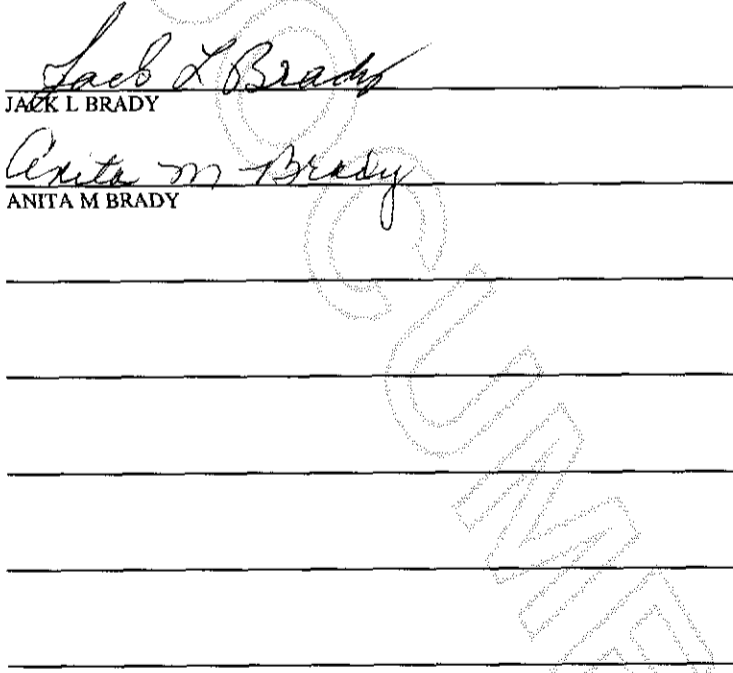 Jack L Brady
JACK L BRADY
Anita M Brady
ANITA M BRADY
CUME